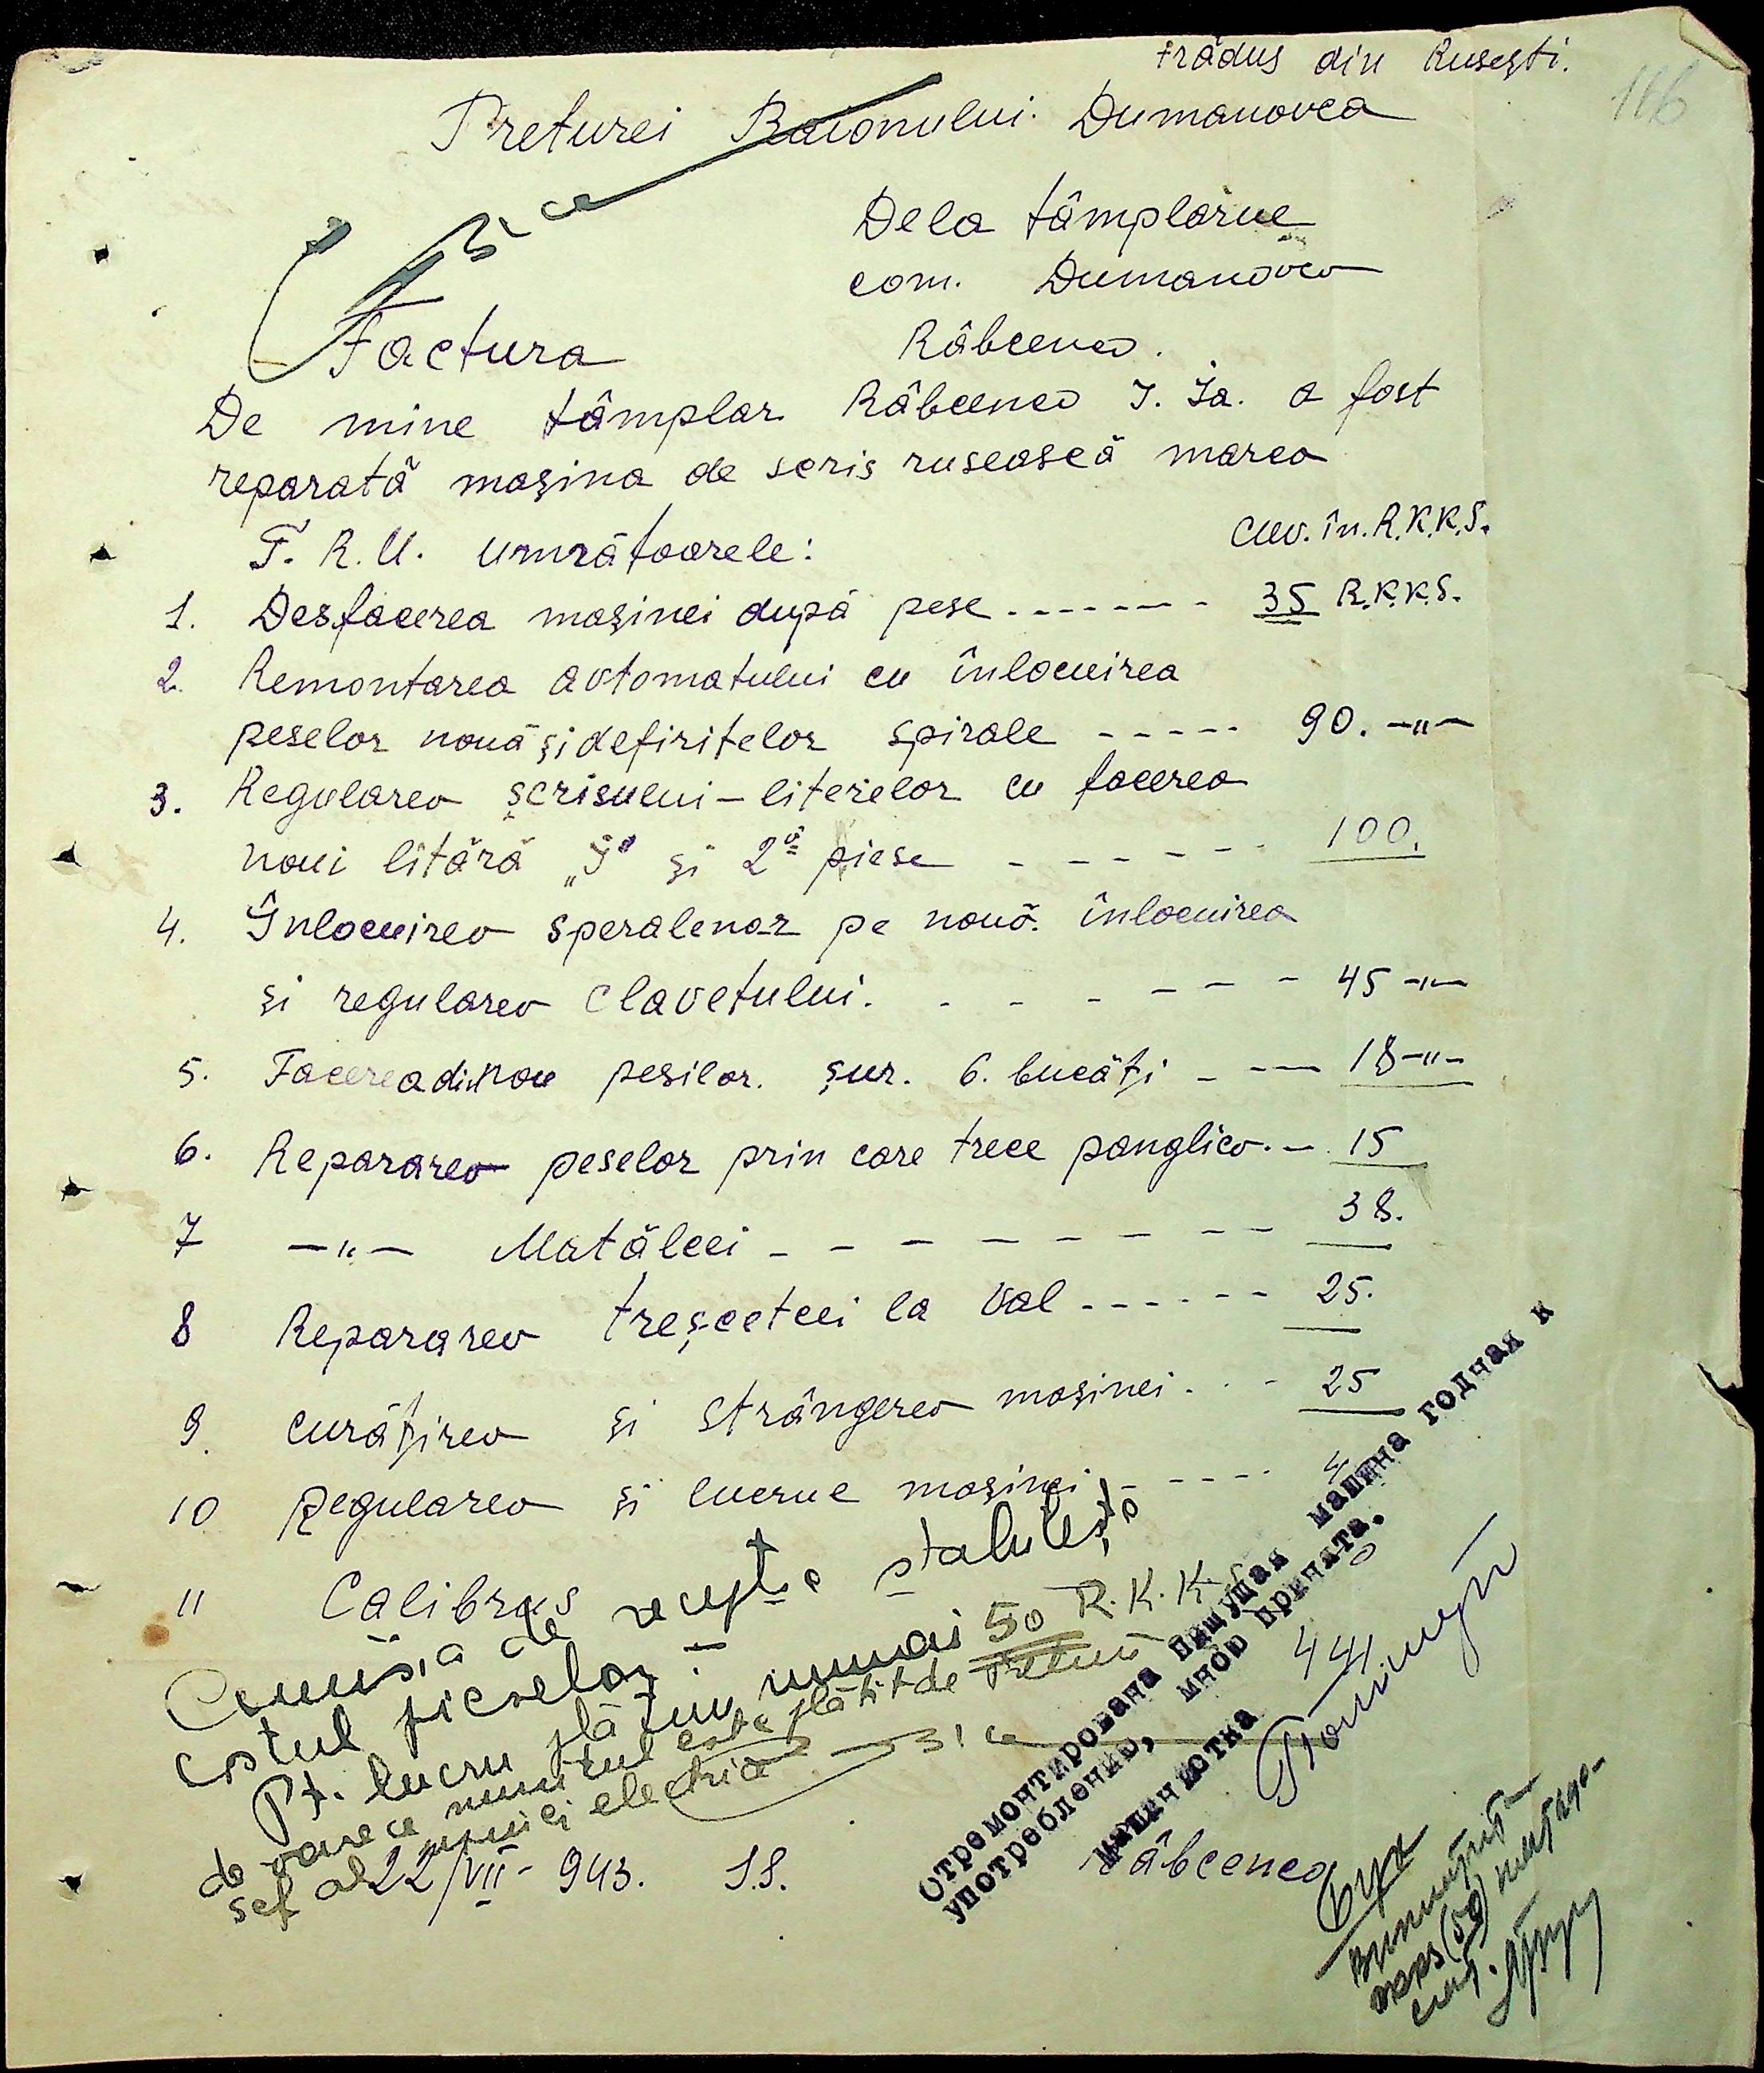 trädus din Rusești.
116
Preturei Raionului Dumanovca
Dela tâmplărue
com. Dumanovca
Factura
Râbcenco.
De mine tâmplar Râbcenco I. Ia. a fost
reparatä mașina de scris ruseascä marca
F. R. U. urmrätoarele:
cuv. în. R.K.K.S.
1. Desfacerea mașinei dupä pese ------- 35 R.K.K.S.
2. Remontarea avtomatului cu înlocuirea
peselor nouä și defiritelor spirale ----- 90. -"-
3. Regularea scrisului-literelor cu facerea
noui litärä și 2ä piese - - - - - - 100.
4. Înlocuirea speralenor pe nouä. înlocuirea
și regularea clavetului. - - - - - - 45 -"-
5. Facerea din nou pesilor. șur. 6. bucäți - --- 18 -"-
6. Repararea peselor prin care trece panglica. - 15
7 -"- Matälcei - - - - - - - - 38.
8 Repararea treșcetcei la val ------ 25.
9. curäțirea și strângerea mașinei. - - 25
10 Regularea și lucrue mașinei - ----
11 Calibrus
Comisia de recepție stabilește
costul pieselor.
Pt. lucru plätim numai 50 R.K.K.S.
de oarece numitul este plätit de Preturä
șef al uzinei electrice
441
22/VII - 943. S.S.
Râbcenco
Отремонтирована пишущая машина годная к
употреблению, мною принята.
Машинистка
Бух
(50)